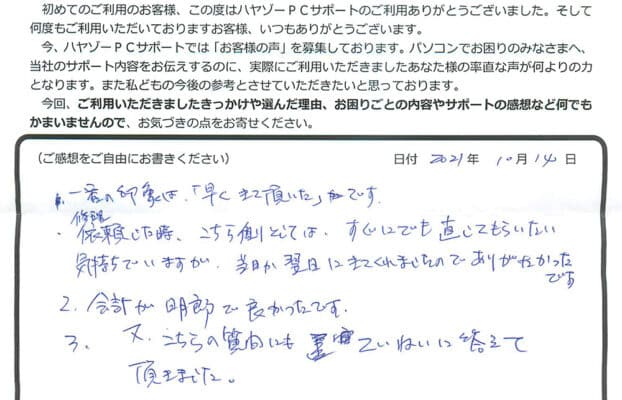 初めてのご利用のお客様、この度はハヤゾーＰＣサポートのご利用ありがとうございました。そして
何度もご利用いただいておりますお客様、いつもありがとうございます。
今、ハヤゾーＰＣサポートでは「お客様の声」を募集しております。パソコンでお困りのみなさまへ、
当社のサポート内容をお伝えするのに、実際にご利用いただきましたあなた様の率直な声が何よりの力
となります。また私どもの今後の参考とさせていただきたいと思っております。
今回、ご利用いただきましたきっかけや選んだ理由、お困りごとの内容やサポートの感想など何でも
かまいませんので、お気づきの点をお寄せください。
（ご感想をご自由にお書きください） 日付 2021年 10月 14日
1. 一番の印象は、「早く来て頂いた」です。
修理
依頼した時、こちら側としては、すぐにでも直してもらいたい
気持ちでいますが、当日か翌日に来てくれましたのでありがたかった
です
2. 会計が明朗で良かったです。
3. 又、こちらの質問にもていねいに答えて
頂きました。